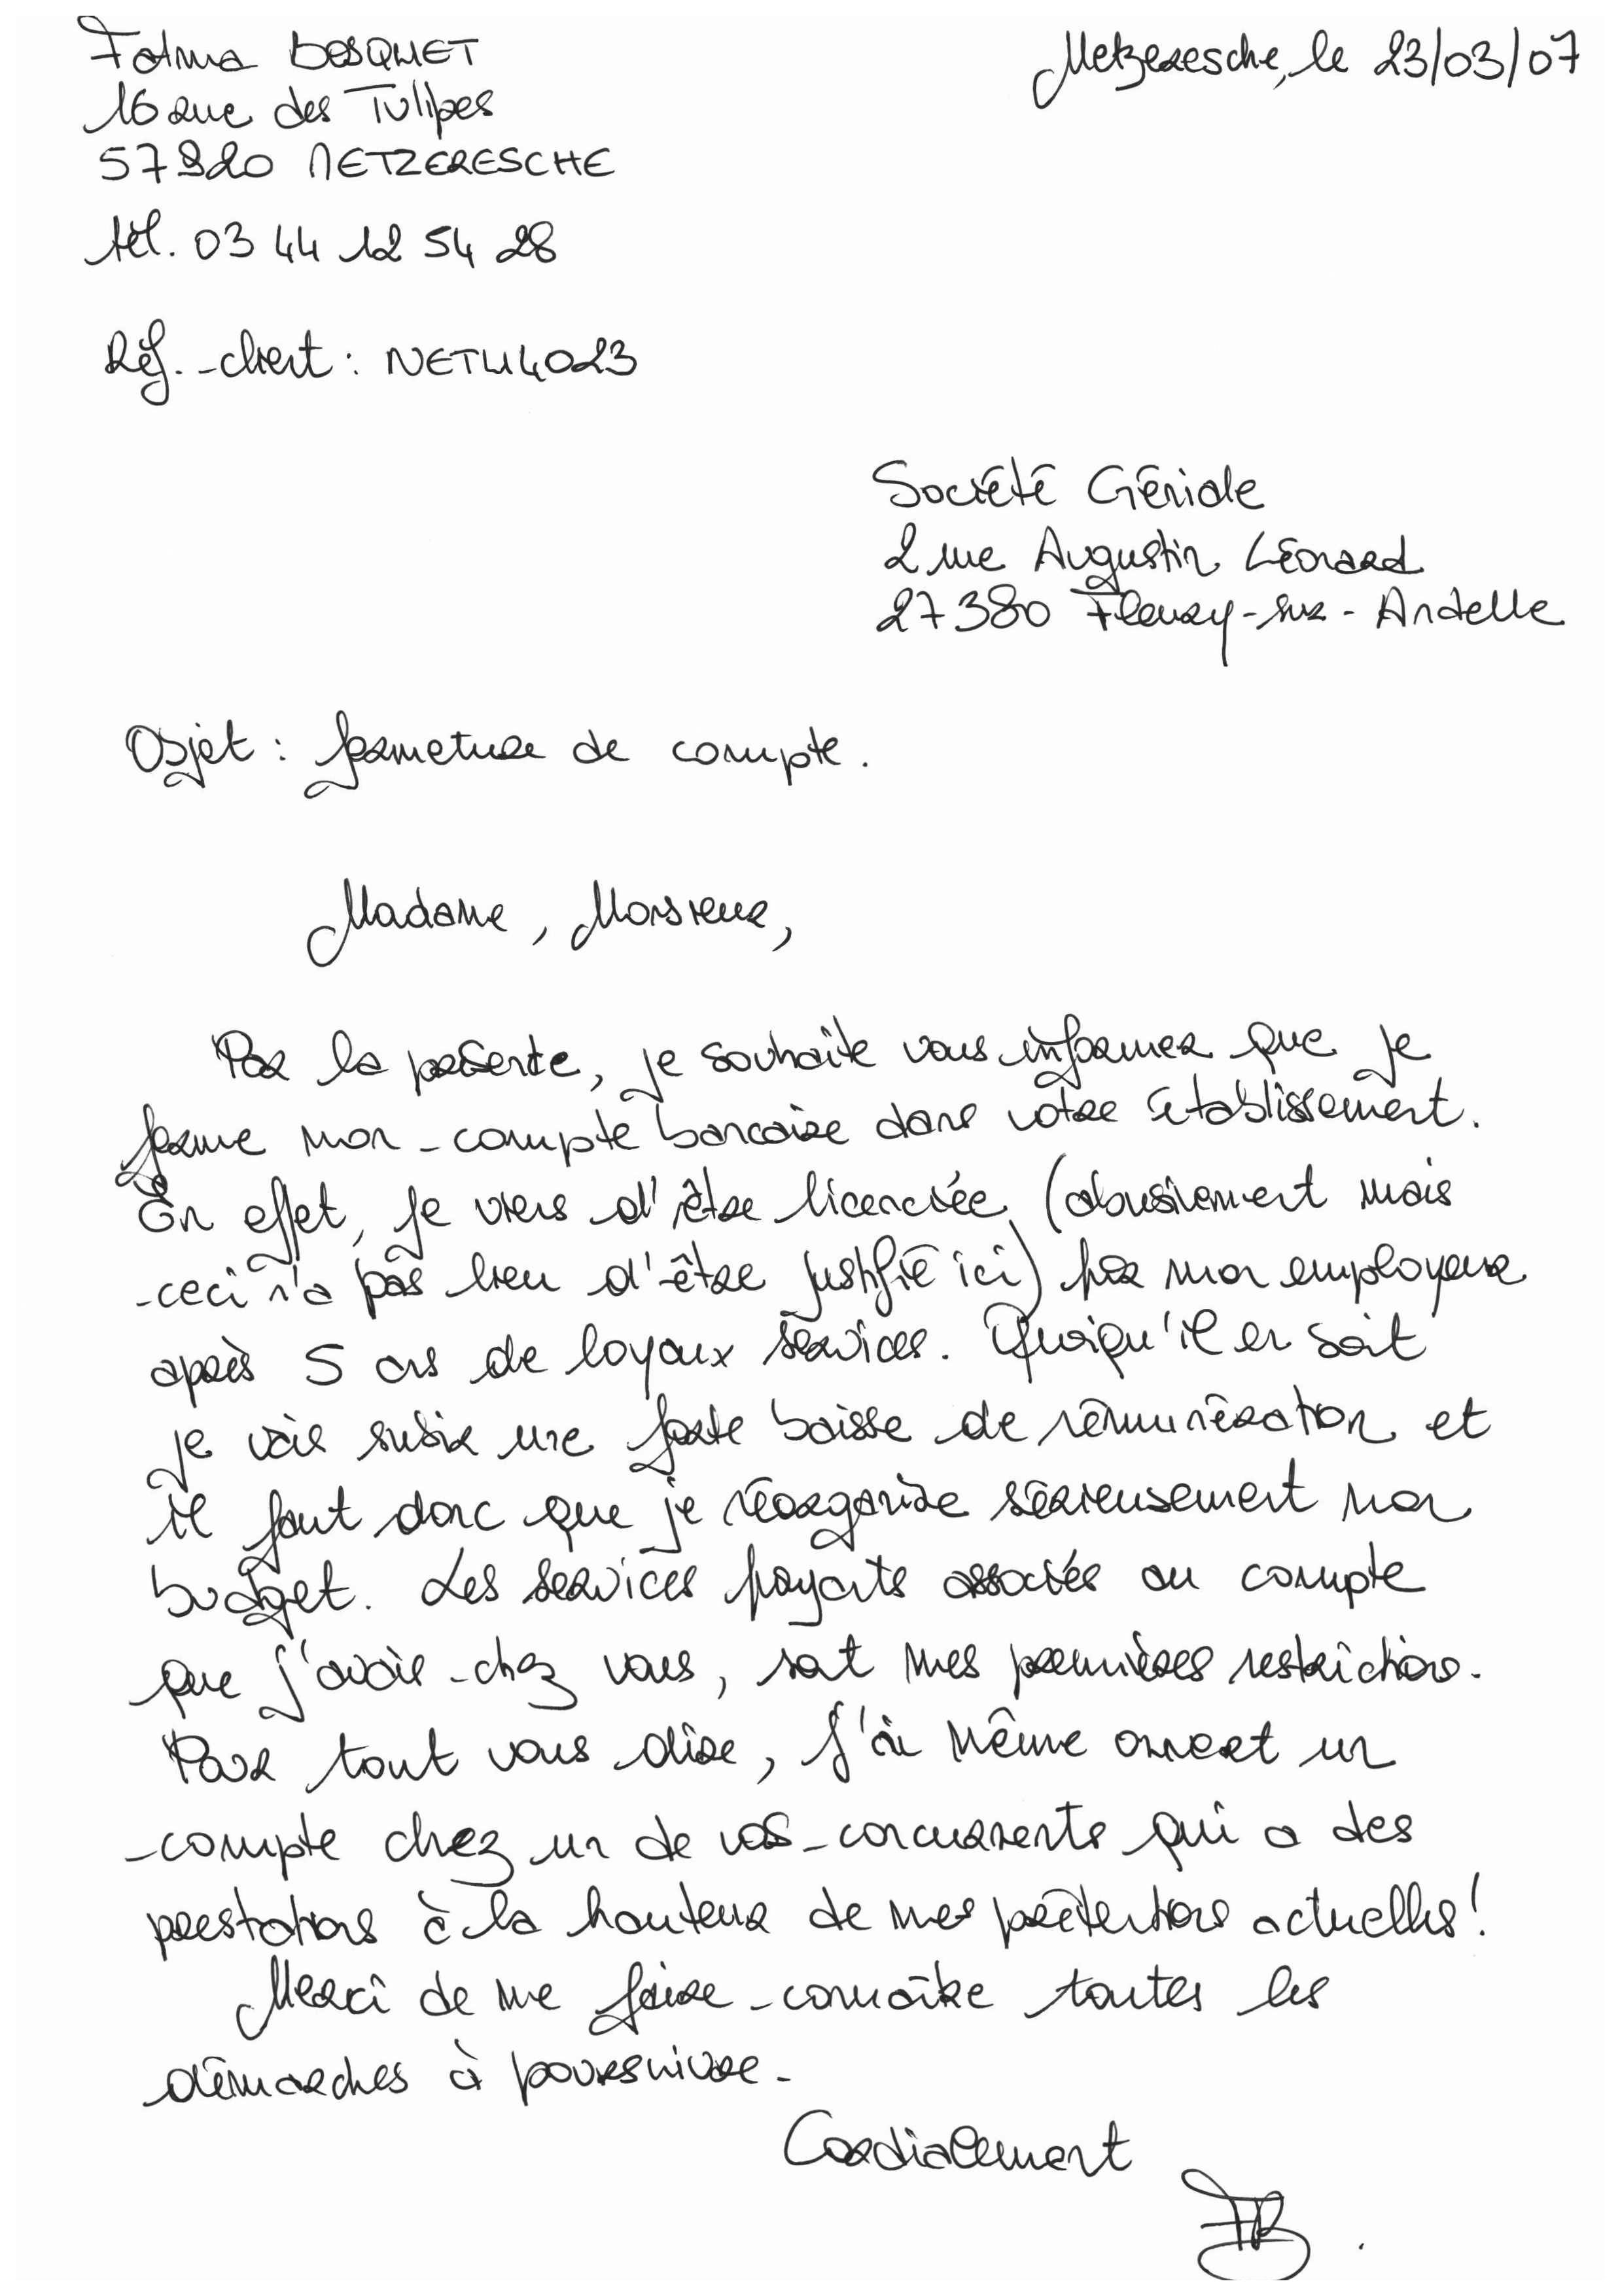 Fatma BOSQUET
Metzeresche, le 23/03/07
16 rue des Tulipes
57920 METZERESCHE
tél. 03 44 12 54 28
Réf. client : NETLU4023
Société Géniale
2 rue Augustin Léonard
27380 Fleury-sur-Andelle
Objet : fermeture de compte.
Madame, Monsieur,
Par la présente, je souhaite vous informer que je
ferme mon compte bancaire dans votre établissement.
En effet, je viens d'être licenciée (abusivement mais
ceci n'a pas lieu d'être justifié ici) par mon employeur
après 5 ans de loyaux services. Quoiqu'il en soit
je vais subir une forte baisse de rémunération et
il faut donc que je réorganise sérieusement mon
budget. Les services payants associés au compte
que j'avais chez vous, sont mes premières restrictions.
Pour tout vous dire, j'ai même ouvert un
compte chez un de vos concurrents qui a des
prestations à la hauteur de mes prétentions actuelles !
Merci de me faire connaître toutes les
démarches à poursuivre.
Cordialement
FB